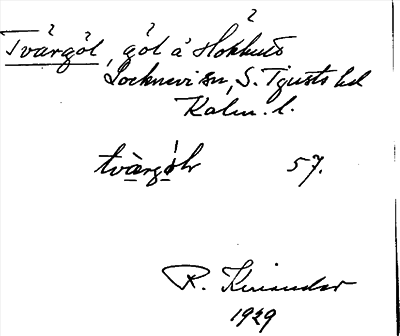 Tvärgöl, göl å Hökhult
Locknevi sn, S. Tjusts hd
Kalm. l.
tvàrgö́lr 57.
R. Kinander
1929